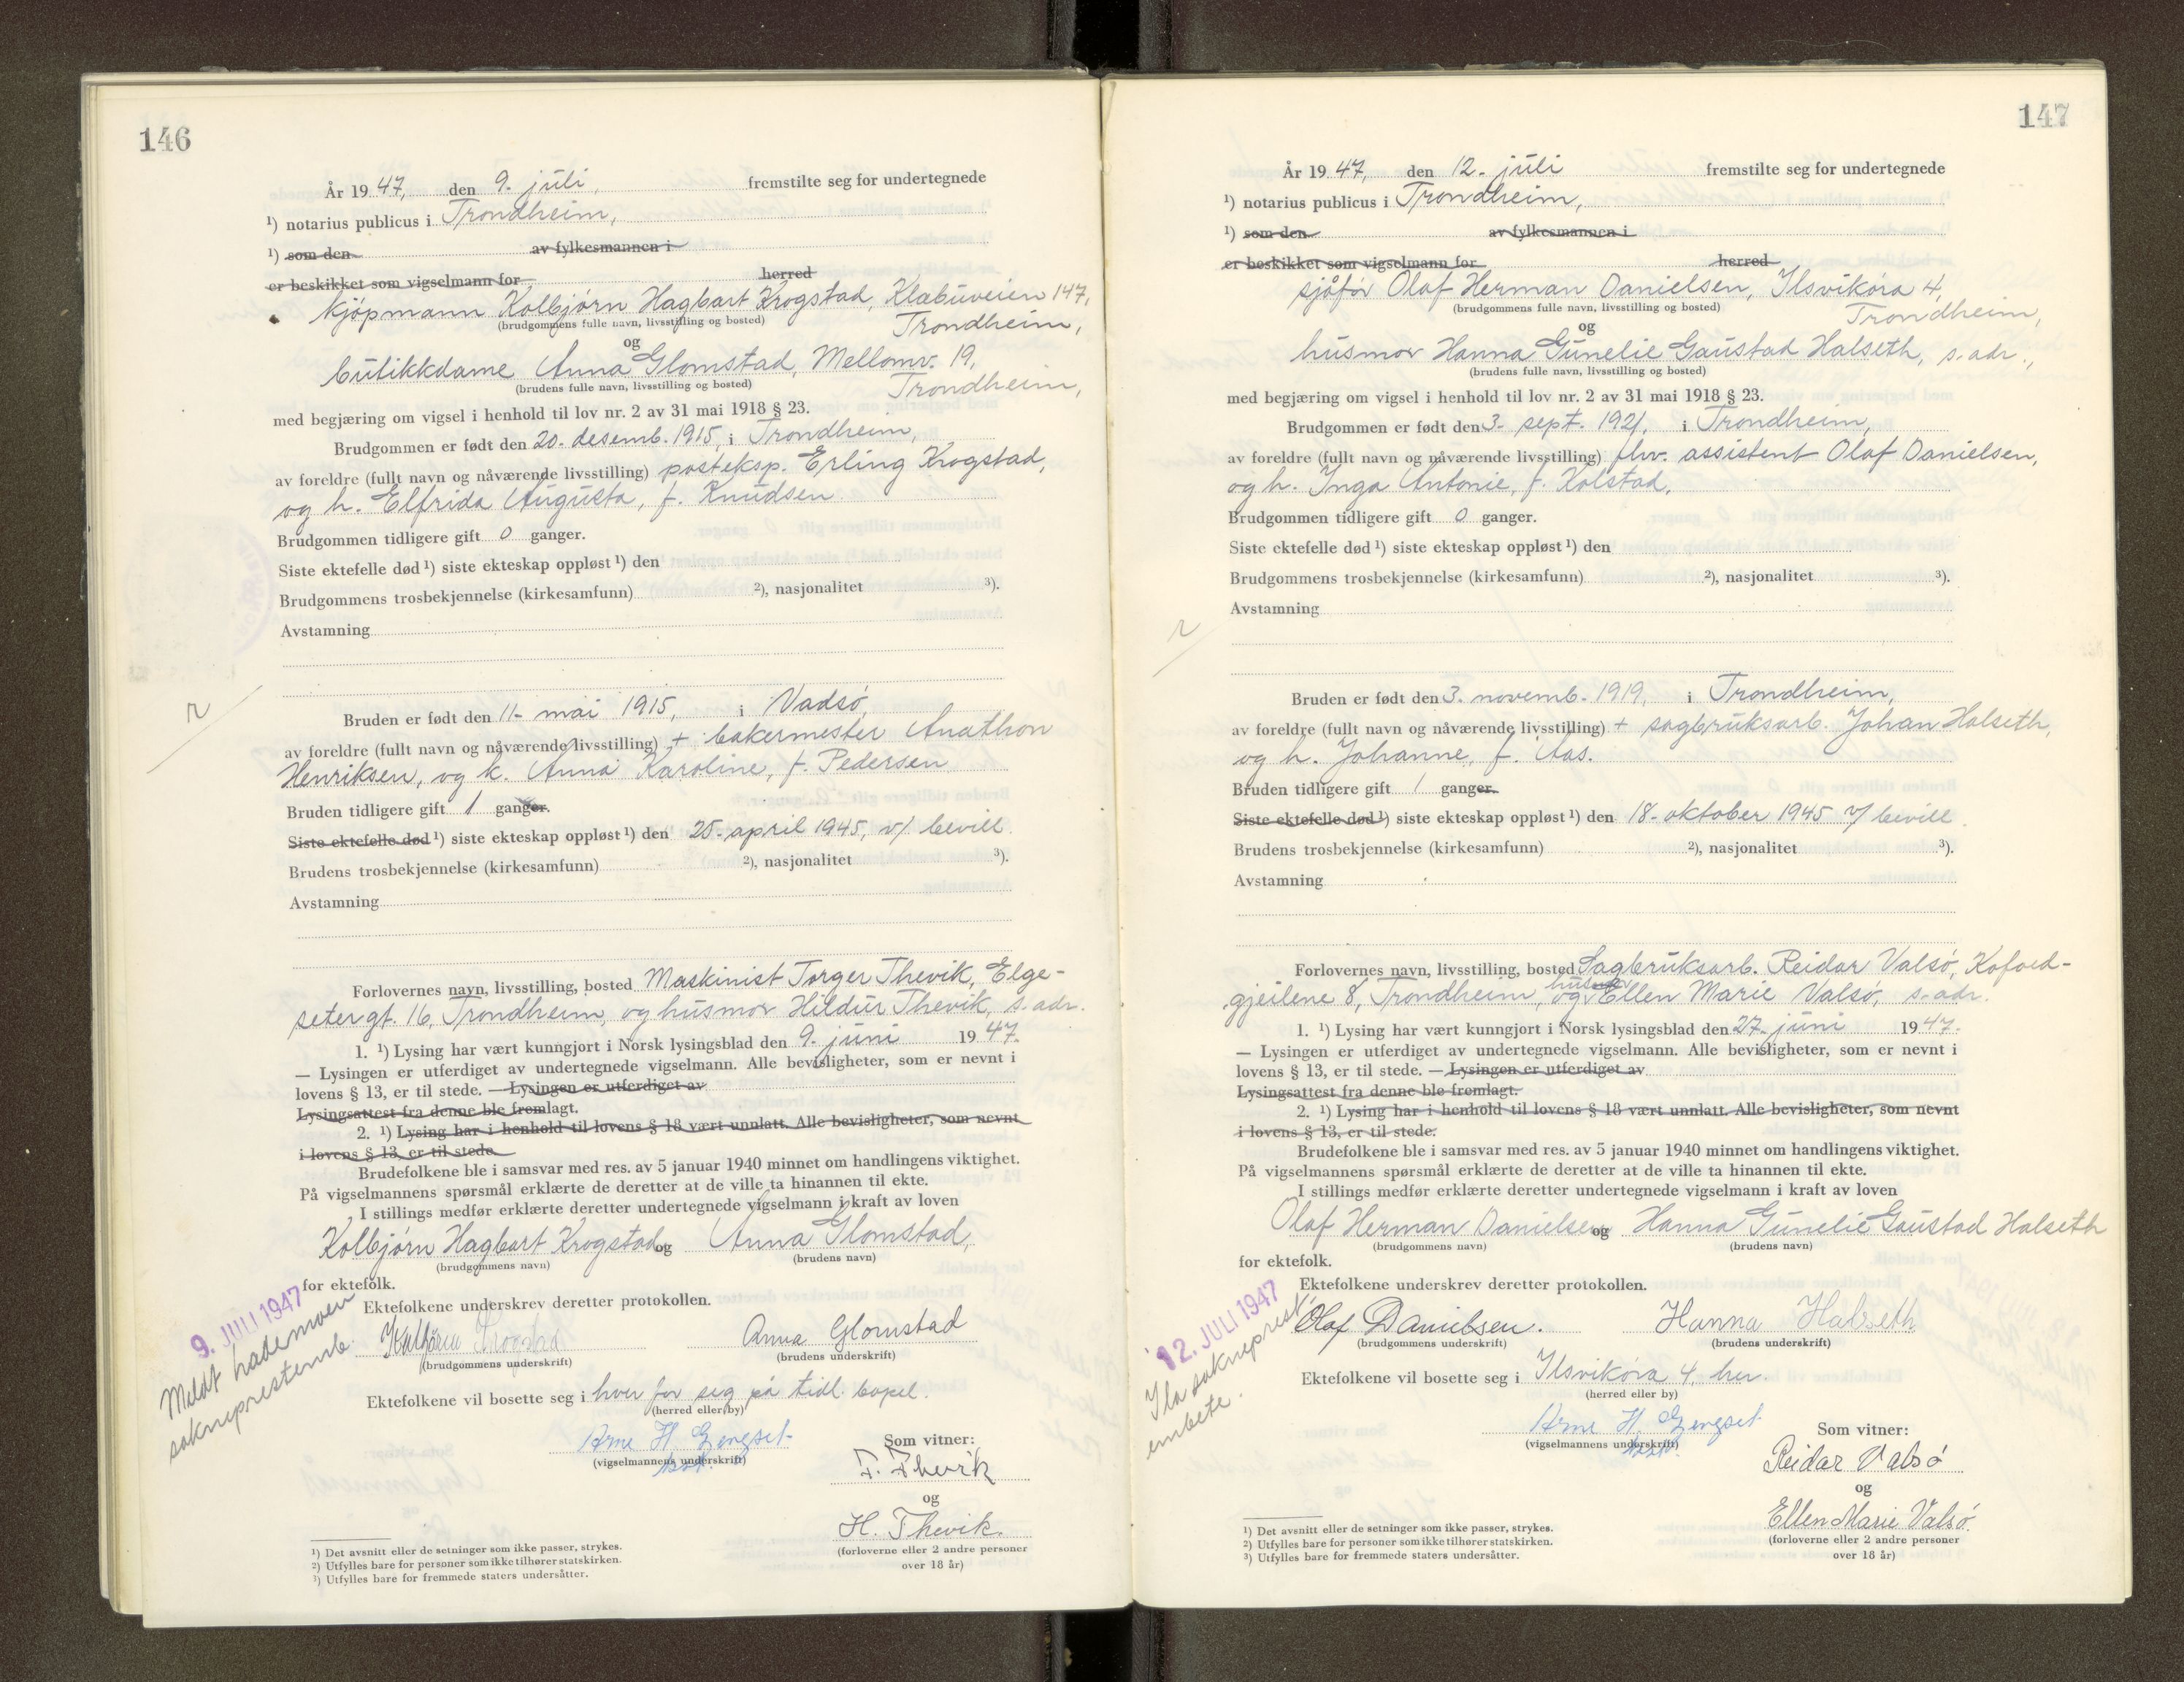 146
År 19 47, den 9. juli, fremstilte seg for undertegnede
¹) notarius publicus i Trondheim,
¹) som den av fylkesmannen i
er beskikket som vigselmann for herred
kjøpmann Kolbjørn Hagbart Krogstad, Klæbuveien 147,
(brudgommens fulle navn, livsstilling og bosted) Trondheim,
og
butikkdame Anna Glomstad, Mellomv. 19,
(brudens fulle navn, livsstilling og bosted) Trondheim,
med begjæring om vigsel i henhold til lov nr. 2 av 31 mai 1918 § 23.
Brudgommen er født den 20. desemb. 1915, i Trondheim,
av foreldre (fullt navn og nåværende livsstilling) posteksp. Erling Krogstad,
og h. Elfrida Augusta, f. Knudsen
Brudgommen tidligere gift 0 ganger.
Siste ektefelle død ¹) siste ekteskap oppløst ¹) den
Brudgommens trosbekjennelse (kirkesamfunn) ²), nasjonalitet ³).
Avstamning
Bruden er født den 11. mai 1915, i Vadsø,
av foreldre (fullt navn og nåværende livsstilling) + bakermester Anathon
Henriksen, og k. Anna Karoline, f. Pedersen
Bruden tidligere gift 1 ganger.
Siste ektefelle død ¹) siste ekteskap oppløst ¹) den 25. april 1945, v/ bevill.
Brudens trosbekjennelse (kirkesamfunn) ²), nasjonalitet ³).
Avstamning
Forlovernes navn, livsstilling, bosted Maskinist Torger Thevik, Elge-
setergt. 16, Trondheim, og husmor Hildur Thevik, s. adr.
1. ¹) Lysing har vært kunngjort i Norsk lysingsblad den 9. juni 19 47.
— Lysingen er utferdiget av undertegnede vigselmann. Alle bevisligheter, som er nevnt i
lovens § 13, er til stede. — Lysingen er utferdiget av
Lysingsattest fra denne ble fremlagt.
2. ¹) Lysing har i henhold til lovens § 18 vært unnlatt. Alle bevisligheter, som nevnt
i lovens § 13, er til stede.
Brudefolkene ble i samsvar med res. av 5 januar 1940 minnet om handlingens viktighet.
På vigselmannens spørsmål erklærte de deretter at de ville ta hinannen til ekte.
I stillings medfør erklærte deretter undertegnede vigselmann i kraft av loven
Kolbjørn Hagbart Krogstad og Anna Glomstad,
(brudgommens navn) (brudens navn)
for ektefolk.
Ektefolkene underskrev deretter protokollen.
9. JULI 1947
Meldt Lademoen
sokneprestemb.
Kolbjørn Krogstad Anna Glomstad
(brudgommens underskrift) (brudens underskrift)
Ektefolkene vil bosette seg i hver for seg på tidl. bopel.
(herred eller by)
Arne H. Gjengset
(vigselmannens underskrift)
Som vitner:
T. Thevik
og
H. Thevik.
(forloverne eller 2 andre personer
over 18 år)
¹) Det avsnitt eller de setninger som ikke passer, strykes.
²) Utfylles bare for personer som ikke tilhører statskirken.
³) Utfylles bare for fremmede staters undersåtter.
147
År 19 47, den 12. juli fremstilte seg for undertegnede
¹) notarius publicus i Trondheim,
¹) som den av fylkesmannen i
er beskikket som vigselmann for herred
sjåfør Olaf Herman Danielsen, Ilsvikøra 4,
(brudgommens fulle navn, livsstilling og bosted) Trondheim,
og
husmor Hanna Gunelie Gaustad Halseth, s. adr.,
(brudens fulle navn, livsstilling og bosted)
med begjæring om vigsel i henhold til lov nr. 2 av 31 mai 1918 § 23.
Brudgommen er født den 3. sept. 1921, i Trondheim,
av foreldre (fullt navn og nåværende livsstilling) fhv. assistent Olaf Danielsen,
og h. Inga Antonie, f. Kolstad,
Brudgommen tidligere gift 0 ganger.
Siste ektefelle død ¹) siste ekteskap oppløst ¹) den
Brudgommens trosbekjennelse (kirkesamfunn) ²), nasjonalitet ³).
Avstamning
Bruden er født den 3. novemb. 1919, i Trondheim,
av foreldre (fullt navn og nåværende livsstilling) + sagbruksarb. Johan Halseth,
og h. Johanne, f. Aas.
Bruden tidligere gift 1 ganger.
Siste ektefelle død ¹) siste ekteskap oppløst ¹) den 18. oktober 1945 v/ bevill.
Brudens trosbekjennelse (kirkesamfunn) ²), nasjonalitet ³).
Avstamning
Forlovernes navn, livsstilling, bosted Sagbruksarb. Reidar Valsø, Kofoed-
gjeilene 8, Trondheim, og husmor Ellen Marie Valsø, s. adr.
1. ¹) Lysing har vært kunngjort i Norsk lysingsblad den 27. juni 19 47.
— Lysingen er utferdiget av undertegnede vigselmann. Alle bevisligheter, som er nevnt i
lovens § 13, er til stede. — Lysingen er utferdiget av
Lysingsattest fra denne ble fremlagt.
2. ¹) Lysing har i henhold til lovens § 18 vært unnlatt. Alle bevisligheter, som nevnt
i lovens § 13, er til stede.
Brudefolkene ble i samsvar med res. av 5 januar 1940 minnet om handlingens viktighet.
På vigselmannens spørsmål erklærte de deretter at de ville ta hinannen til ekte.
I stillings medfør erklærte deretter undertegnede vigselmann i kraft av loven
Olaf Herman Danielsen og Hanna Gunelie Gaustad Halseth
(brudgommens navn) (brudens navn)
for ektefolk.
Ektefolkene underskrev deretter protokollen.
12. JULI 1947
Ila sokneprest-
embete.
Olaf Danielsen. Hanna Halseth
(brudgommens underskrift) (brudens underskrift)
Ektefolkene vil bosette seg i Ilsvikøra 4, her.
(herred eller by)
Arne H. Gjengset
(vigselmannens underskrift)
Som vitner:
Reidar Valsø
og
Ellen Marie Valsø.
(forloverne eller 2 andre personer
over 18 år)
¹) Det avsnitt eller de setninger som ikke passer, strykes.
²) Utfylles bare for personer som ikke tilhører statskirken.
³) Utfylles bare for fremmede staters undersåtter.